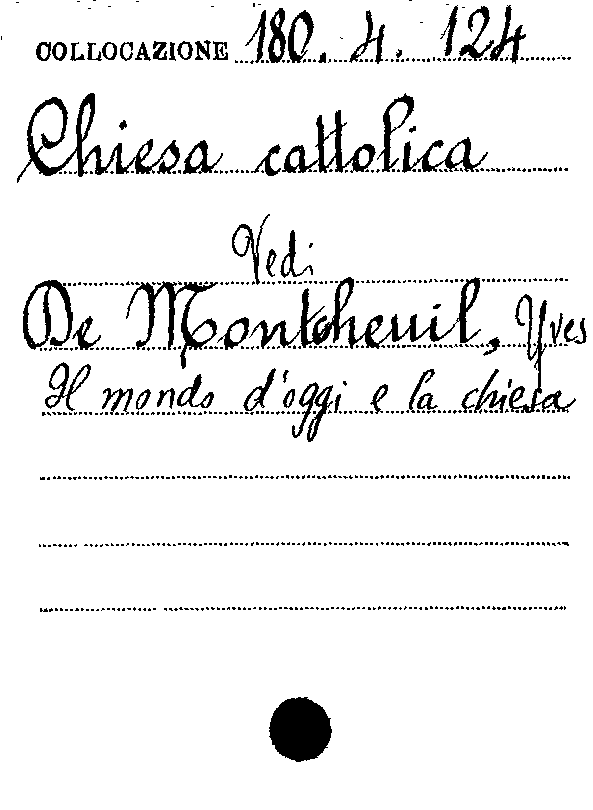 COLLOCAZIONE 180. 4. 124
Chiesa cattolica
Vedi
De Montcheuil, Yves
Il mondo d'oggi e la chiesa